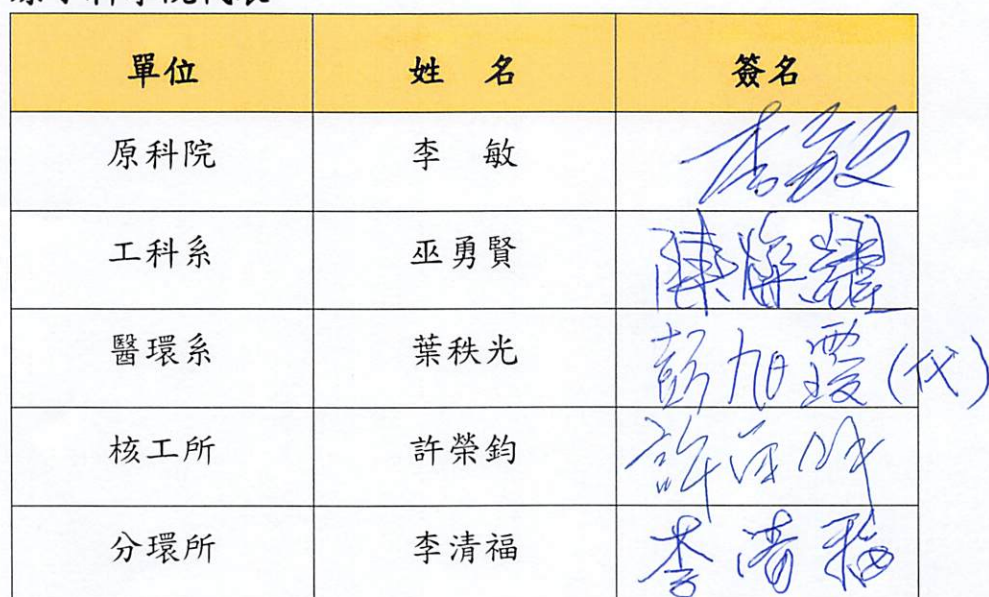 單位 姓 名 簽名
原科院 李 敏 李敏
工科系 巫勇賢 陳
醫環系 葉秩光 彭旭霞(代)
核工所 許榮鈞 許
分環所 李清福 李清福